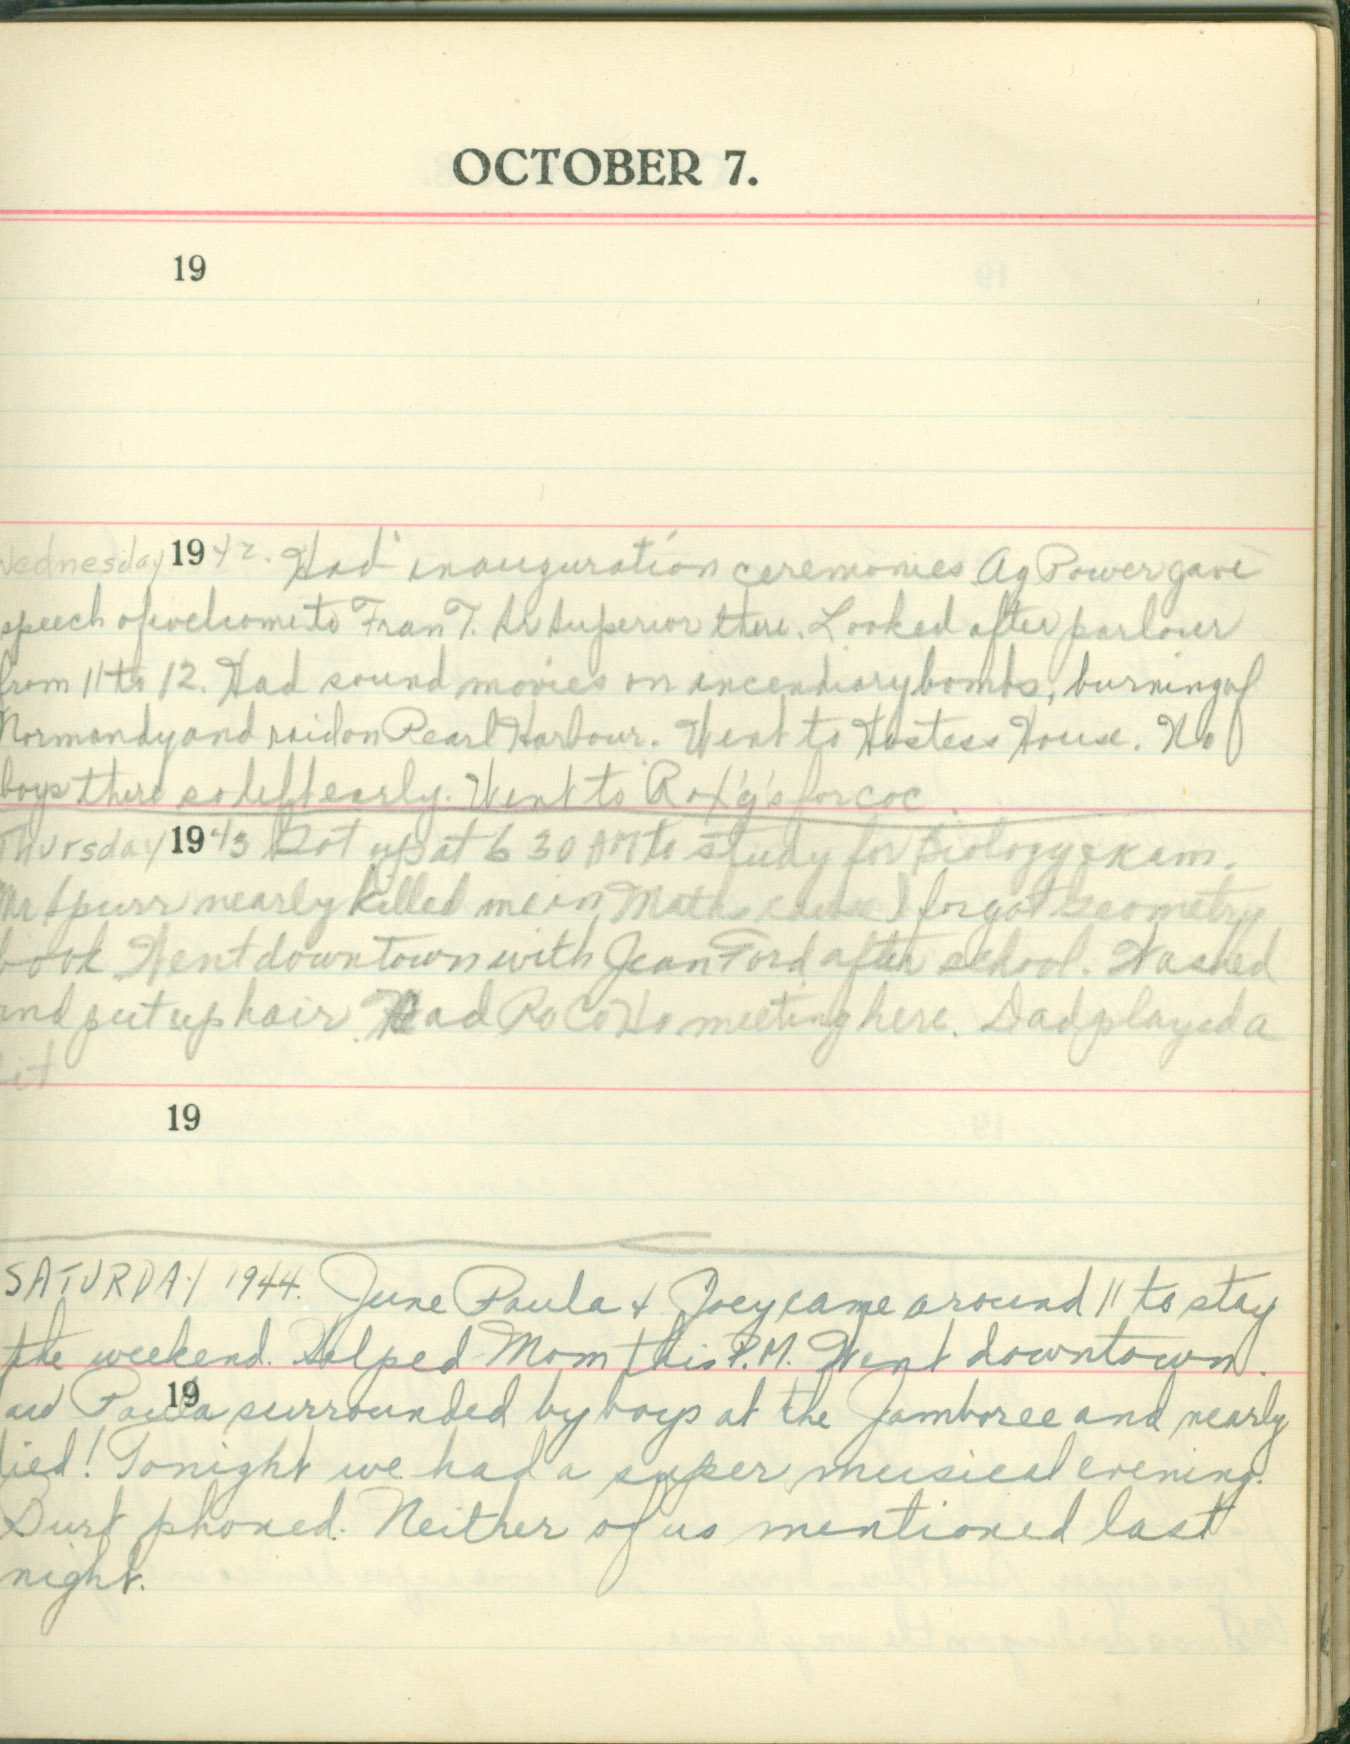 OCTOBER 7.
19
Wednesday 1942. Had inauguration ceremonies Ag Power gave
speech of welcome to Fran T. Sr Superior there. Looked after parlour
from 11 to 12. Had sound movies on incendiary bombs, burning of
Normandy and raid on Pearl Harbour. Went to Hostess House. No
boys there so left early. Went to Roxy's for coc
Thursday 1943 Got up at 6 30 AM to study for Biology exam.
Mr Spurr nearly killed me in Math cause I forgot Geometry
book Went downtown with Jean Ford after school. Washed
and put up hair. Had Ro Co Ho meeting here. Dad played a
bit
19
SATURDAY 1944. June Paula & Joey came around 11 to stay
the weekend. Helped Mom this P.M. Went downtown.
19
aw Paula surrounded by boys at the Jamboree and nearly
died! Tonight we had a super musical evening.
Burt phoned. Neither of us mentioned last
night.